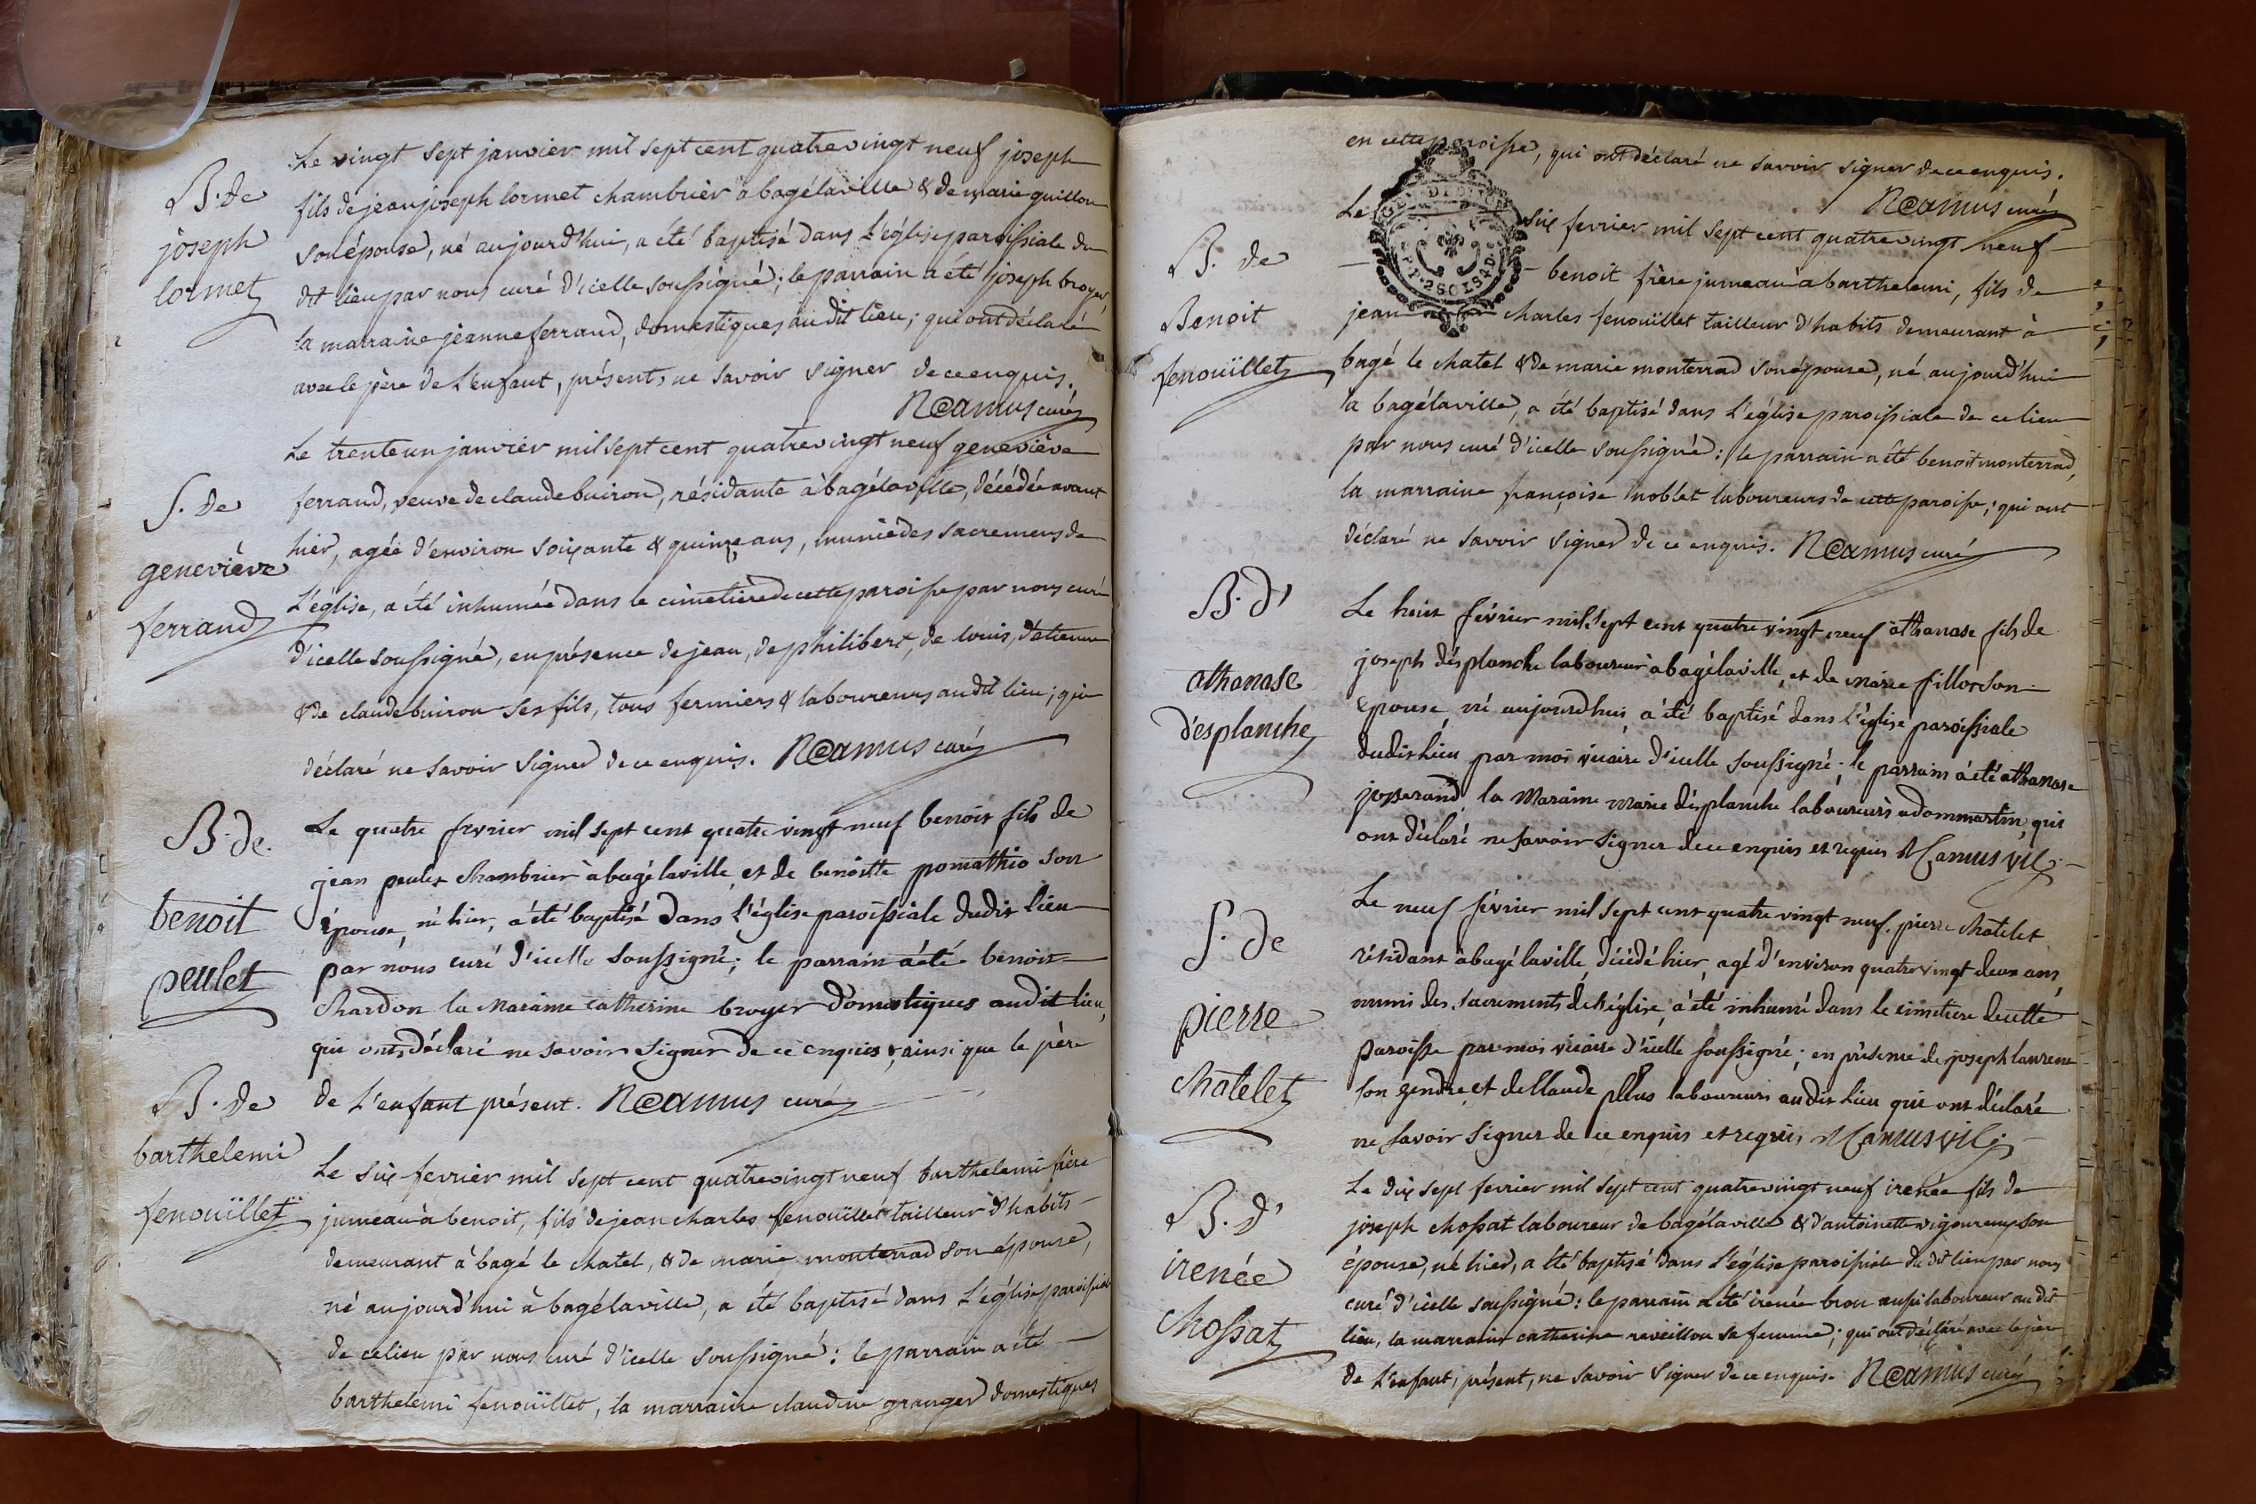 B. de
joseph
lormet
Le vingt sept janvier mil sept cent quatre vingt neuf joseph
fils de jean joseph lormet chambrier à bagélaville & de marie guillon
son épouse, né aujourd'hui, a été baptisé dans l'église paroissiale du
dit lieu par nous curé d'icelle soussigné; le parrain a été joseph broyer,
la marraine jeanne ferrand, domestiques au dit lieu; qui ont déclaré
avec le père de l'enfant, présent, ne savoir signer de ce enquis.
curé
S. de
geneviève
ferrand
Le trente un janvier mil sept cent quatre vingt neuf geneviève
ferrand, veuve de claude buiron, résidante à bagélaville, décédée avant
hier, agée d'environ soixante & quinze ans, munie des sacremens de
l'église, a été inhumée dans le cimetière de cette paroisse par nous curé
d'icelle soussigné, en présence de jean, de philibert, de louis, d'etienne
& de claude buiron ses fils, tous fermiers & laboureurs au dit lieu; qui
déclaré ne savoir signer de ce enquis. curé
B. de
benoit
peulet
Le quatre fevrier mil sept cent quatre vingt neuf benoit fils de
jean peulet chambrier à bagélaville, et de benoitte pomathio son
épouse, né hier, a été baptisé dans l'église paroissiale dudit lieu
par nous curé d'icelle soussigné; le parrain a été benoit
chardon la maraine catherine broyer domestiques audit lieu,
qui ont déclaré ne savoir signer de ce enquis, ainsi que le père
de l'enfant présent. curé
B. de
barthelemi
fenouïllet
Le six fevrier mil sept cent quatre vingt neuf barthelemi frère
jumeau à benoit, fils de jean charles fenouïllet tailleur d'habits
demeurant à bagé le chatel, & de marie monterrad son épouse,
né aujourd'hui à bagélaville, a été baptisé dans l'église paroissiale
de ce lieu par nous curé d'icelle soussigné: le parrain a été
barthelemi fenouïllet, la marraine claudine granger domestiques
en cette paroisse, qui ont déclaré ne savoir signer de ce enquis.
curé
B. de
Benoit
fenouïllet
Le six fevrier mil sept cent quatre vingt neuf
benoit frère jumeau à barthelemi, fils de
jean charles fenouïllet tailleur d'habits demeurant à
bagé le chatel & de marie monterrad son épouse, né aujourd'hui
a bagélaville, a été baptisé dans l'église paroissiale de ce lieu
par nous curé d'icelle soussigné: le parrain a été benoit monterrad,
la marraine françoise noblet laboureurs de cette paroisse; qui ont
déclaré ne savoir signer de ce enquis. curé
B. d'
athanase
désplanche
Le huit février mil sept cent quatre vingt neuf athanase fils de
joseph désplanche laboureur à bagélaville, et de marie fillon son
épouse né aujourdhui, a été baptisé dans l'église paroissiale
dudit lieu par moi vicaire d'icelle soussigné; le parrain a été athanase
josserand, la maraine marie désplanche laboureurs a dommartin, qui
ont déclaré ne savoir signer de ce enquis et requis
S. de
pierre
chatelet
Le neuf février mil sept cent quatre vingt neuf, pierre chatelet
résidant à bagélaville, décédé hier, agé d'environ quatre vingt deux ans,
muni des sacrements de l'église, a été inhumé dans le cimetiere de cette
paroisse par moi vicaire d'icelle soussigné; en présence de joseph laurent
son gendre, et de Claude laboureurs audit lieu qui ont déclaré
ne savoir signer de ce enquis et requis
B. d'
irenée
Chossat
Le dix sept fevrier mil sept cent quatre vingt neuf irenée fils de
joseph chossat laboureur de bagélaville & d'antoinette son
épouse, né hier, a été baptisé dans l'église paroissiale du dit lieu par nous
curé d'icelle soussigné: le parrain a été irenée brou aussi laboureur au dit
lieu, la marraine catherine reveillon sa femme; qui ont déclaré avec le père
de l'enfant, présent, ne savoir signer de ce enquis. curé